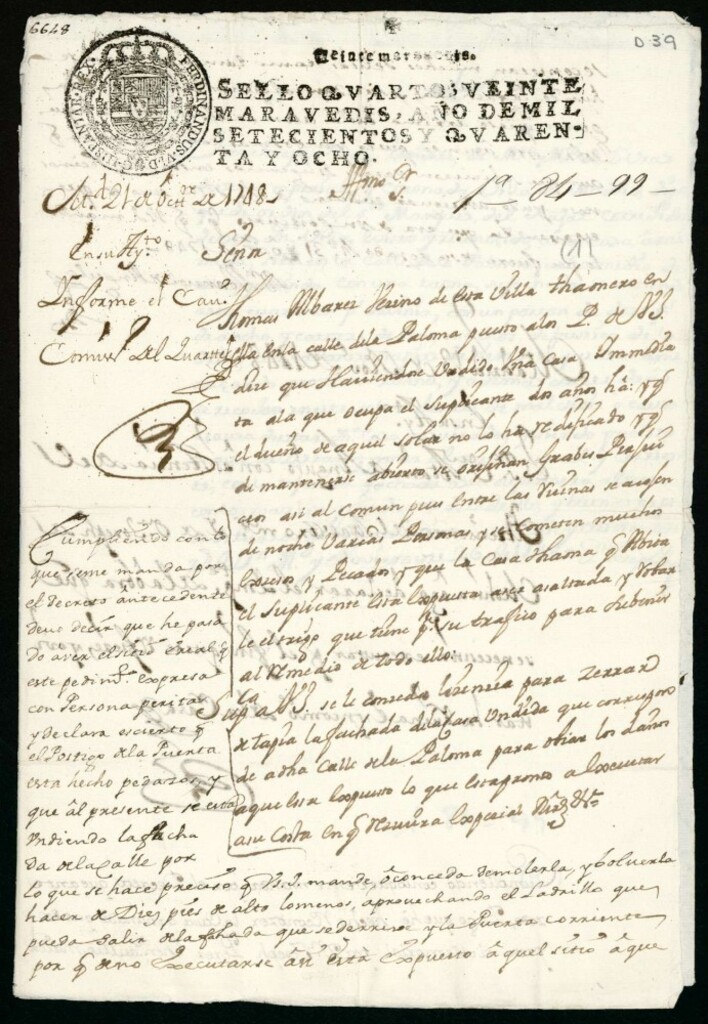 6648
D 39
FERDINANDUS VI D G HISPANIAR REX
Veinte maravedis.
SELLO QVARTO, VEINTE
MARAVEDIS, AÑO DE MIL
SETECIENTOS Y QVAREN-
TA Y OCHO.
21 de de 1748
1ª 84 - 99 -
(1)
En su Ay.to
Señor
Informe el Cav.o
Comis.o del Quartel
Thomas Albarez Vezino de esta Villa thaonero en
ella en la calle de la Paloma puesto a los P. de V.S.
dize que Haviendose Undido Una Casa Immedia
ta a la que ocupa el suplicante dos años hà: y q.e
el dueño de aquel solar no lo ha reedificado y q.e
de mantenerse abierto se orijinan Grabes Perjui
cios asi al Comun pues entre las Ruinas se acojen
de noche Varias Personas y se Cometen muchos
Excesos y Pecados, y que la Casa thaona q.e Abita
el Suplicante Esta Expuesta a ser asaltada y Robar
le el trigo que tiene p.a su trafico para subvenir
al Remedio de todo ello:
Sup.ca a V.S. se le conceda lizenzia para zerrar
de tapia la fachada de la Casa Undida que corresponde
a dha Calle de la Paloma para obiar los daños
a que esta Expuesto lo que esta prompto a Executar
a su Costa en q.e Rezivirà Especial
Cumpliendo con lo
que se me manda por
el decreto antecedente
devo decir que he pasa
do a ver el sitio
este pedim.to expresa
con Persona perita
y declara es cierto q.e
el Postigo de la Puerta
esta hecho pedazos, y
que âl presente se està
Undiendo la facha
da de la Calle por
lo que se hace preciso q.e V.S. mande, ô conceda demolerla, y bolverla
hacer de Diez pies de alto lo menos, aprovechando el Ladrillo que
pueda salir de la fachada que se derrive y la Puerta corriente
por q.e de no Executarse âsi està Expuesto âquel sitio â que